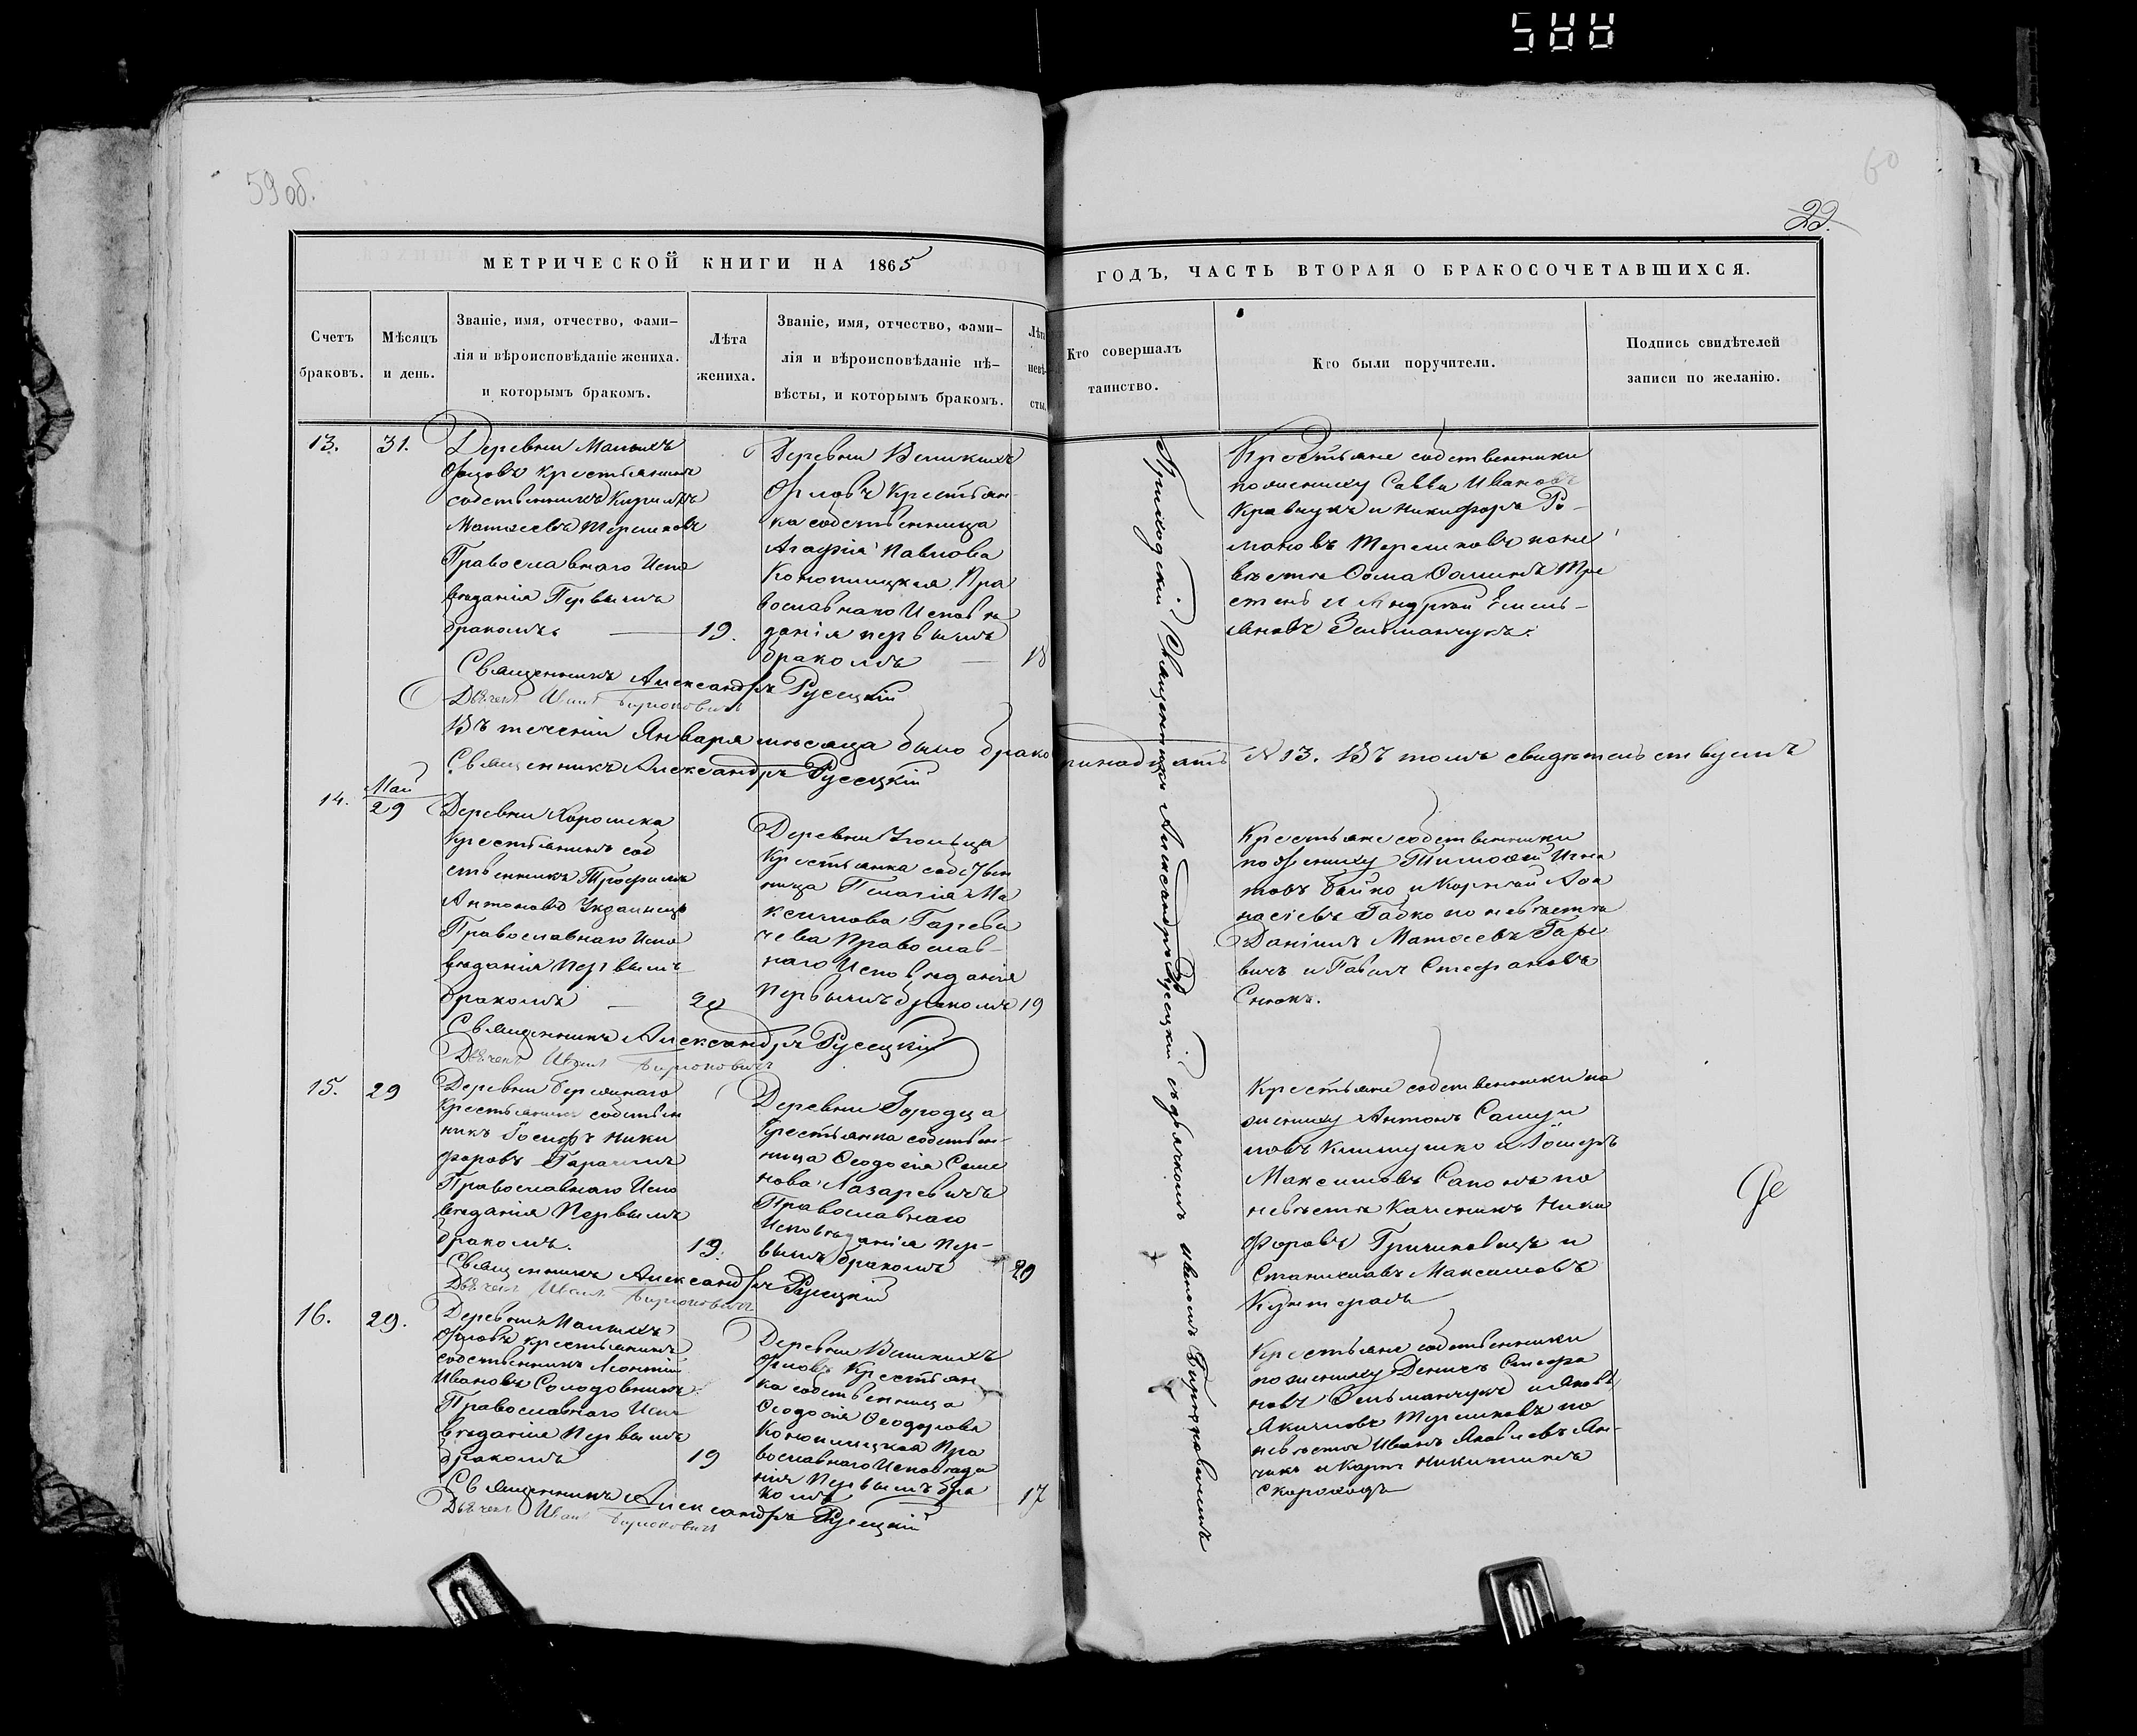 59 об.
60
22.
МЕТРИЧЕСКОЙ КНИГИ НА 1865
ГОДЪ, ЧАСТЬ ВТОРАЯ О БРАКОСОЧЕТАВШИХСЯ.
Счетъ
браковъ.
Мѣсяцъ
и день.
Званіе, имя, отчество, фами-
лія и вѣроисповѣданіе жениха.
и которымъ бракомъ.
Лѣта
жениха.
Званіе, имя, отчество, фами-
лія и вѣроисповѣданіе нѣ-
вѣсты, и которымъ бракомъ.
Лѣта
невѣ-
сты.
Кто совершалъ
таинство.
Кто были поручители.
Подпись свидѣтелей
записи по желанію.
13.
31.
Деревни Малыхъ
Орловъ крестьянинъ
собственникъ Кирилъ
Матѳеевъ Терешковъ
Православнаго Испо
вѣданія Первымъ
бракомъ
19.
Деревни Великихъ
Орловъ Крестьян-
ка собственница
Агафія Павлова
Конопицкая Пра
вославнаго Исповѣ
данія первымъ
бракомъ
18
Приходскій Священникъ Александръ Русецкій съ дьячкомъ Иваномъ Бирюковичемъ
Крестьяне собственники
по жениху Савва Ивановъ
Кравчукъ и Никифоръ Ро-
мановъ Терешковъ по не
вѣстѣ Ѳома Ѳоминъ Тре
стень и Андрей Емель-
яновъ Зельманчукъ.
Священникъ Александръ Русецкій
Дьячекъ Иванъ Бирюковичъ
Въ теченіи Января мѣсяца было брако тринадцать N 13. Въ томъ свидѣтельствуемъ
Священникъ Александръ Русецкій
14.
Май
29
Деревни Хорошека
Крестьянинъ соб
ственникъ Трофимъ
Антоновъ Украинецъ
Православнаго Испо
вѣданія первымъ
бракомъ
20
Деревни Угольца
Крестьянка собствен
ница Пелагія Ма
ксимова Гареви
чева Православ-
наго Исповѣданія
Первымъ бракомъ
19
Крестьяне собственники
по жениху Тимоѳей Игна
товъ Бойко и Корней Аѳа
насіевъ Бабко по невѣстѣ
Даніилъ Матѳеевъ Гаре
вичъ и Павелъ Стефановъ
Снюкъ.
Священникъ Александръ Русецкій
Дьячекъ Иванъ Бирюковичъ
15.
29
Деревни Бережнаго
Крестьянинъ собствен
никъ Іосифъ Ники
форовъ
Православнаго Испо
вѣданія Первымъ
бракомъ.
19.
Деревни Городца
Крестьянка собствен-
ница Ѳеодосія Семе
нова Лазаревичъ
Православнаго
Исповѣданія Пер-
вымъ бракомъ
20
Крестьяне собственники по
жениху Антонъ Самуи
ловъ и
Максимовъ по
невѣстѣ Ники
форовъ и
Станиславъ Максимовъ
Священникъ Александръ Русецкій
Дьячекъ Иванъ Бирюковичъ
16.
29.
Деревни Малыхъ
Орловъ крестьянинъ
собственникъ Леонтій
Ивановъ Солодовникъ
Православнаго Испо
вѣданія Первымъ
бракомъ
19
Деревни Великихъ
Орловъ Крестьян
ка собственница
Ѳеодосія Ѳеодорова
Конопицкая Пра
вославнаго Исповѣда
нія Первымъ бра
комъ
17
Крестьяне собственники
по жениху Денисъ Стефа
новъ Зельманчукъ и Яковъ
Якимовъ Терешковъ по
невѣстѣ Иванъ Яковлевъ Ян-
чикъ и Карпъ Никитинъ
Скороходъ
Священникъ Александръ Русецкій
Дьячекъ Иванъ Бирюковичъ